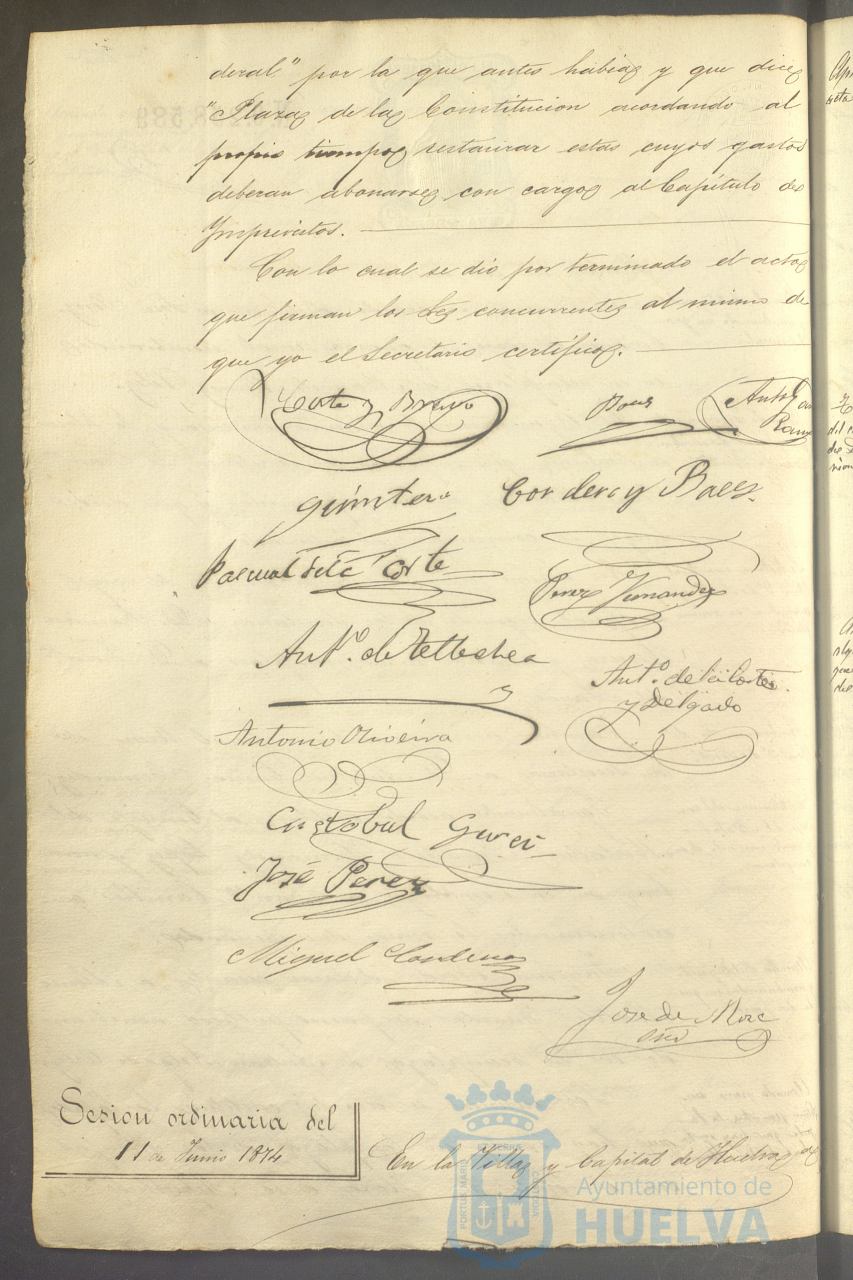 deral" por la que antes habia y que dice
"Plaza de la Constitucion acordando al
propio tiempo restaurar estas cuyos gastos
deberan abonarse con cargo al Capítulo de
Imprevistos.
Con lo cual se dio por terminado el acto
que firman los Sres concurrentes al mismo de
que yo el Secretario certifico.
Corte y Bravo
Quintero
Cordero y Baez.
Pascual de la Corte
Perez Hernandez
Ant.º de Tellechea
Ant.º de la Corte
y Delgado
Antonio Oliveira
Cristobal Garci
José Perez
Miguel Cardenas
Jose de Mora
Srio
Sesion ordinaria del
11 de Junio 1874
En la Villa y Capital de Huelva
Ayuntamiento de
HUELVA